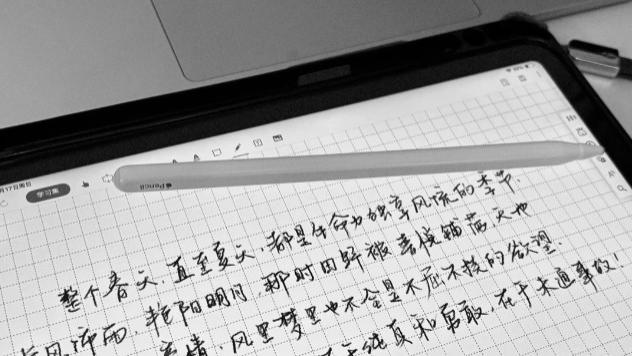 月17日周日
学习集
Pencil
整个春天,直至夏天,都是生命力独享风流的季节.
风沛雨,艳阳明月,那时田野被喜悦铺满,天地
情,风里梦里也不全是不屈不挠的欲望.
纯真和勇敢,在于未通事故!